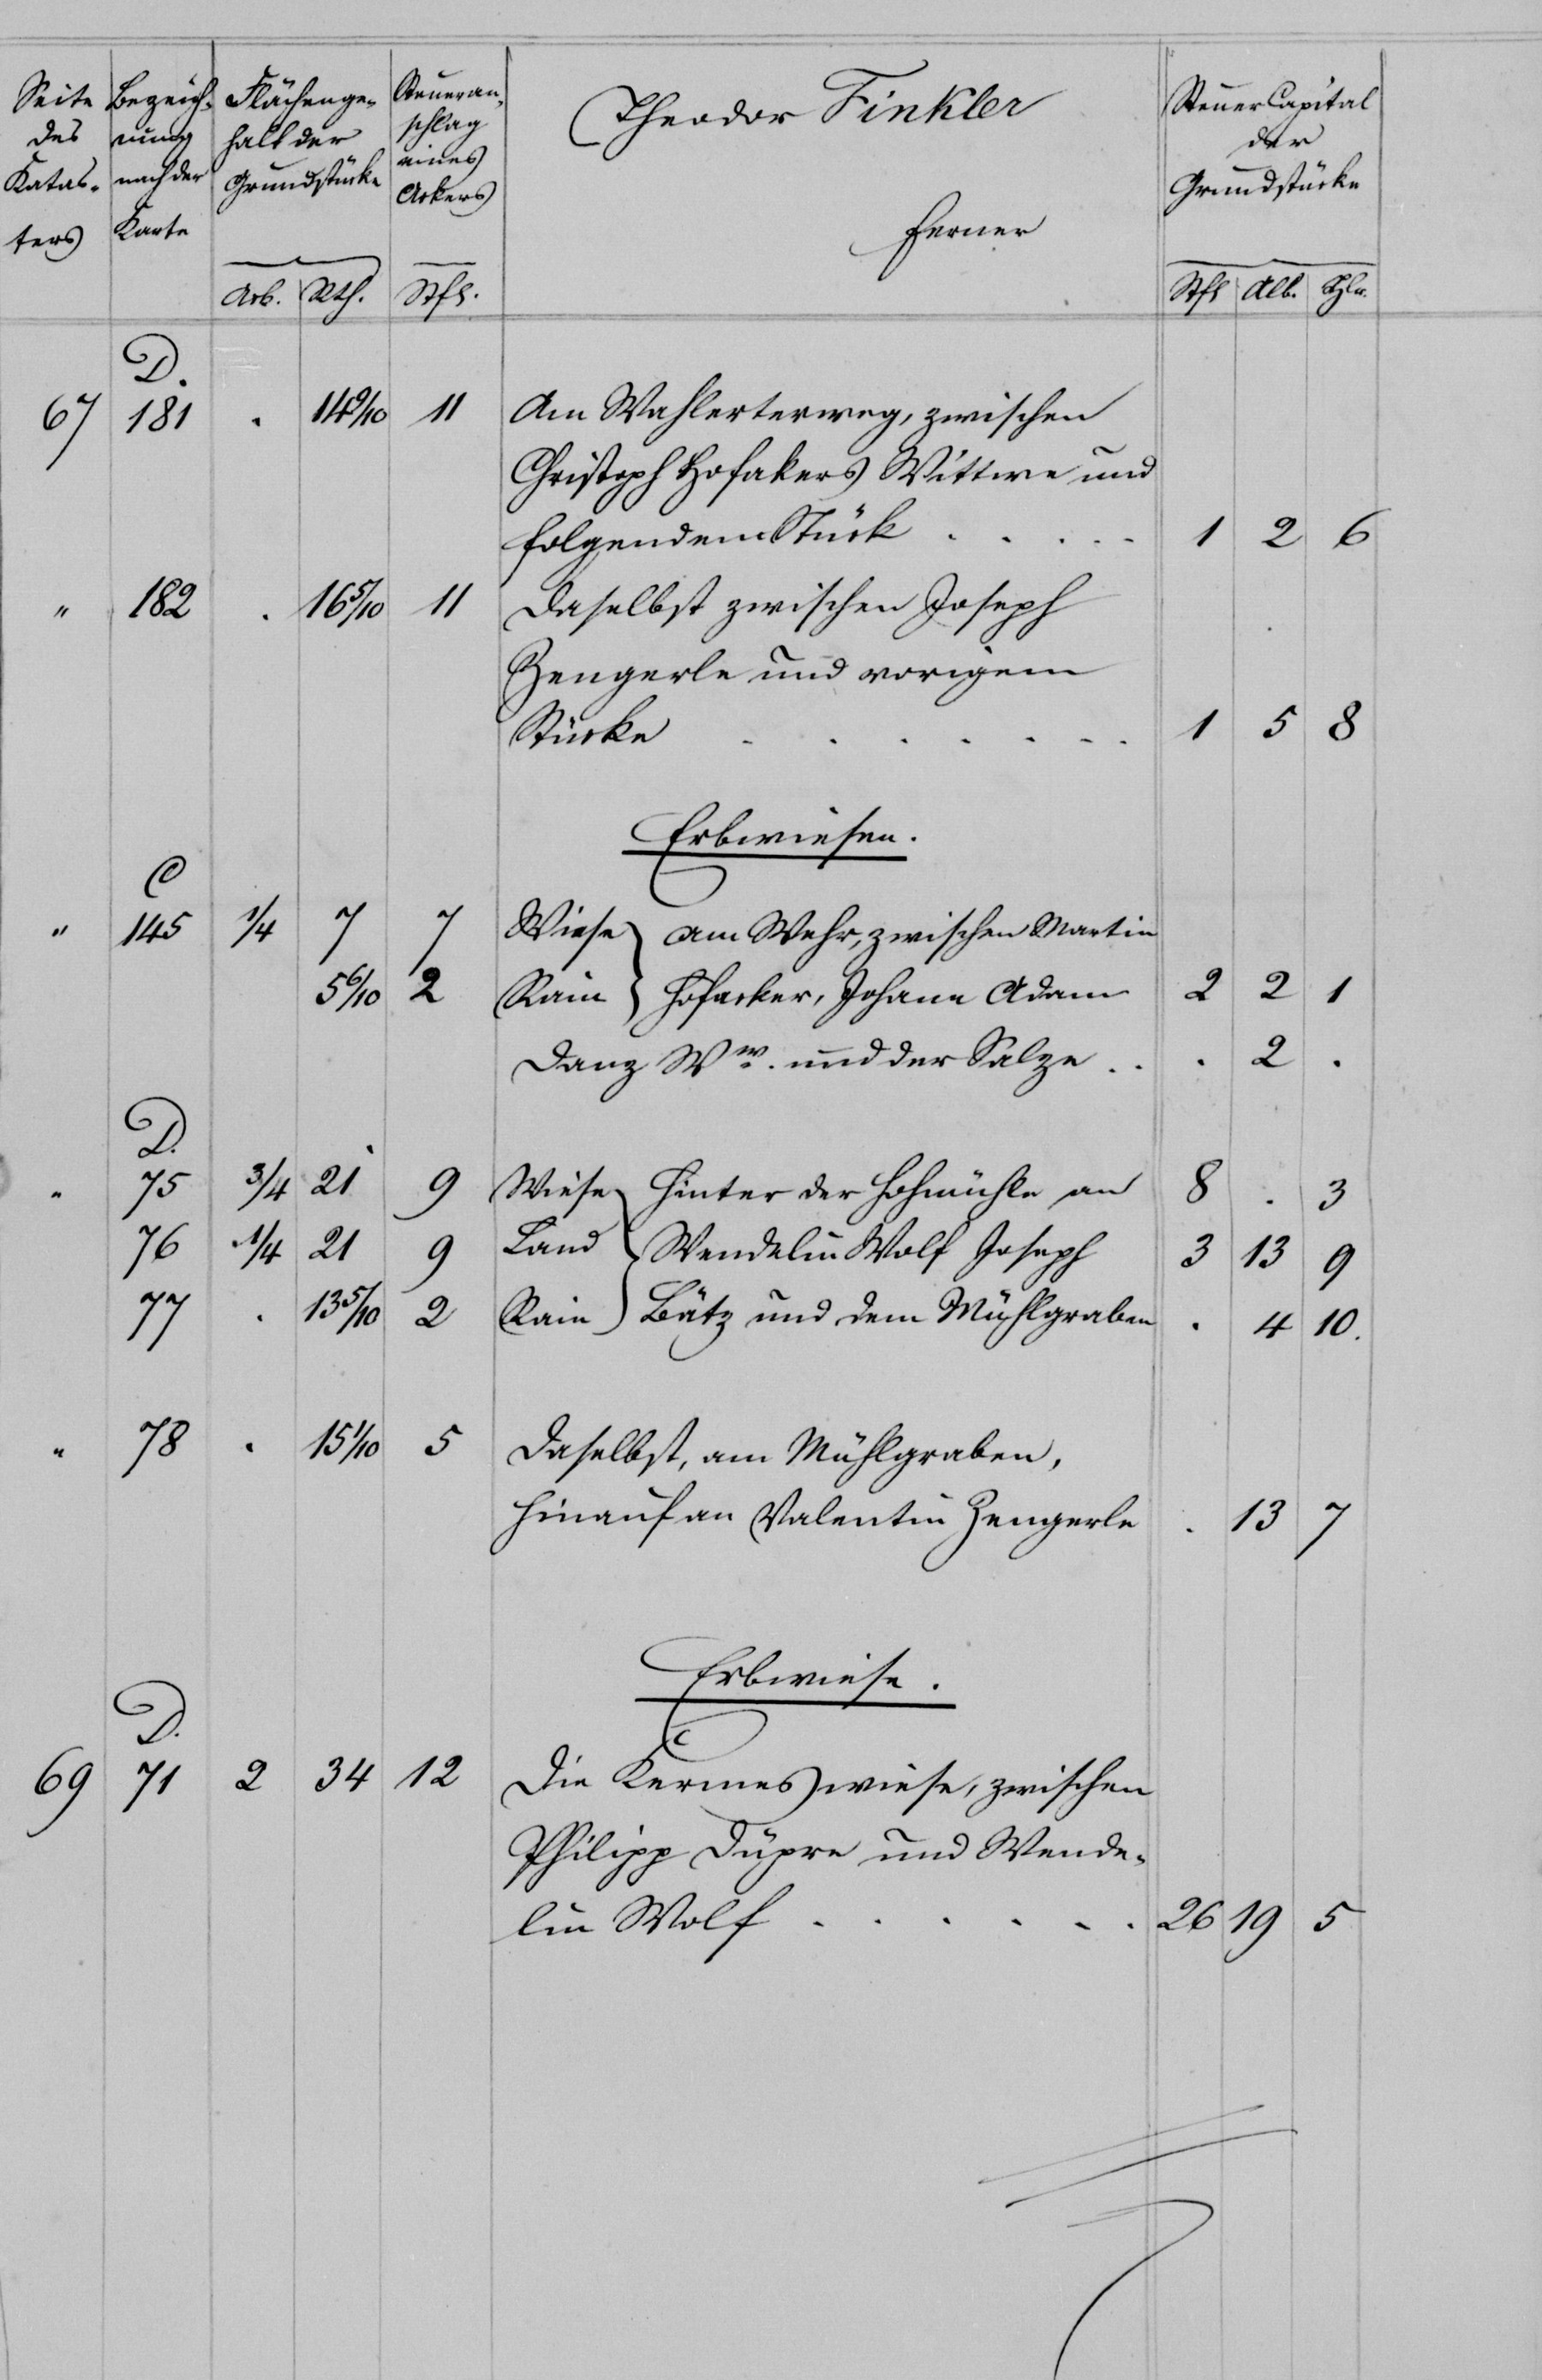 Seite des Katas- ters | Bezeich- nung nach der Karte | Flächenge- halt der Grundstücke | Steueran- schlag eines Ackers | Theodor Finkler | Steuer Capital der Grundstücke
ferner
Ack. | Rth. | Stfl. | Stfl | Alb. | Hlr.
D.
67 | 181 | . | 14 9/10 | 11 | Am Wahlerterweg, zwischen
Christoph Hofakers Wittwe und
folgendem Stück . . . . . | 1 | 2 | 6
" | 182 | . | 16 5/10 | 11 | Daselbst zwischen Joseph
Zengerle und vorigem
Stücke . . . . . . . | 1 | 5 | 8
Erbwiesen.
C
" | 145 | 1/4 | 7 | 7 | Wiese } am Wehr, zwischen Martin
5 6/10 | 2 | Rain } Hofacker, Johann Adam | 2 | 2 | 1
Danz Ww. und der Salze . . | . | 2 | .
D.
" | 75 | 3/4 | 21 | 9 | Wiese } Hinter der Hohmühle an | 8 | . | 3
76 | 1/4 | 21 | 9 | Land } Wendelin Wolf Joseph | 3 | 13 | 9
77 | . | 13 5/10 | 2 | Rain } Bätz und dem Mühlgraben | . | 4 | 10.
" | 78 | . | 15 1/10 | 5 | Daselbst, am Mühlgraben,
hinauf an Valentin Zengerle | . | 13 | 7
Erbwiese.
D.
69 | 71 | 2 | 34 | 12 | Die Kermeswiese, zwischen
Philipp Düpre und Wende-
lin Wolf . . . . . . | 26 | 19 | 5